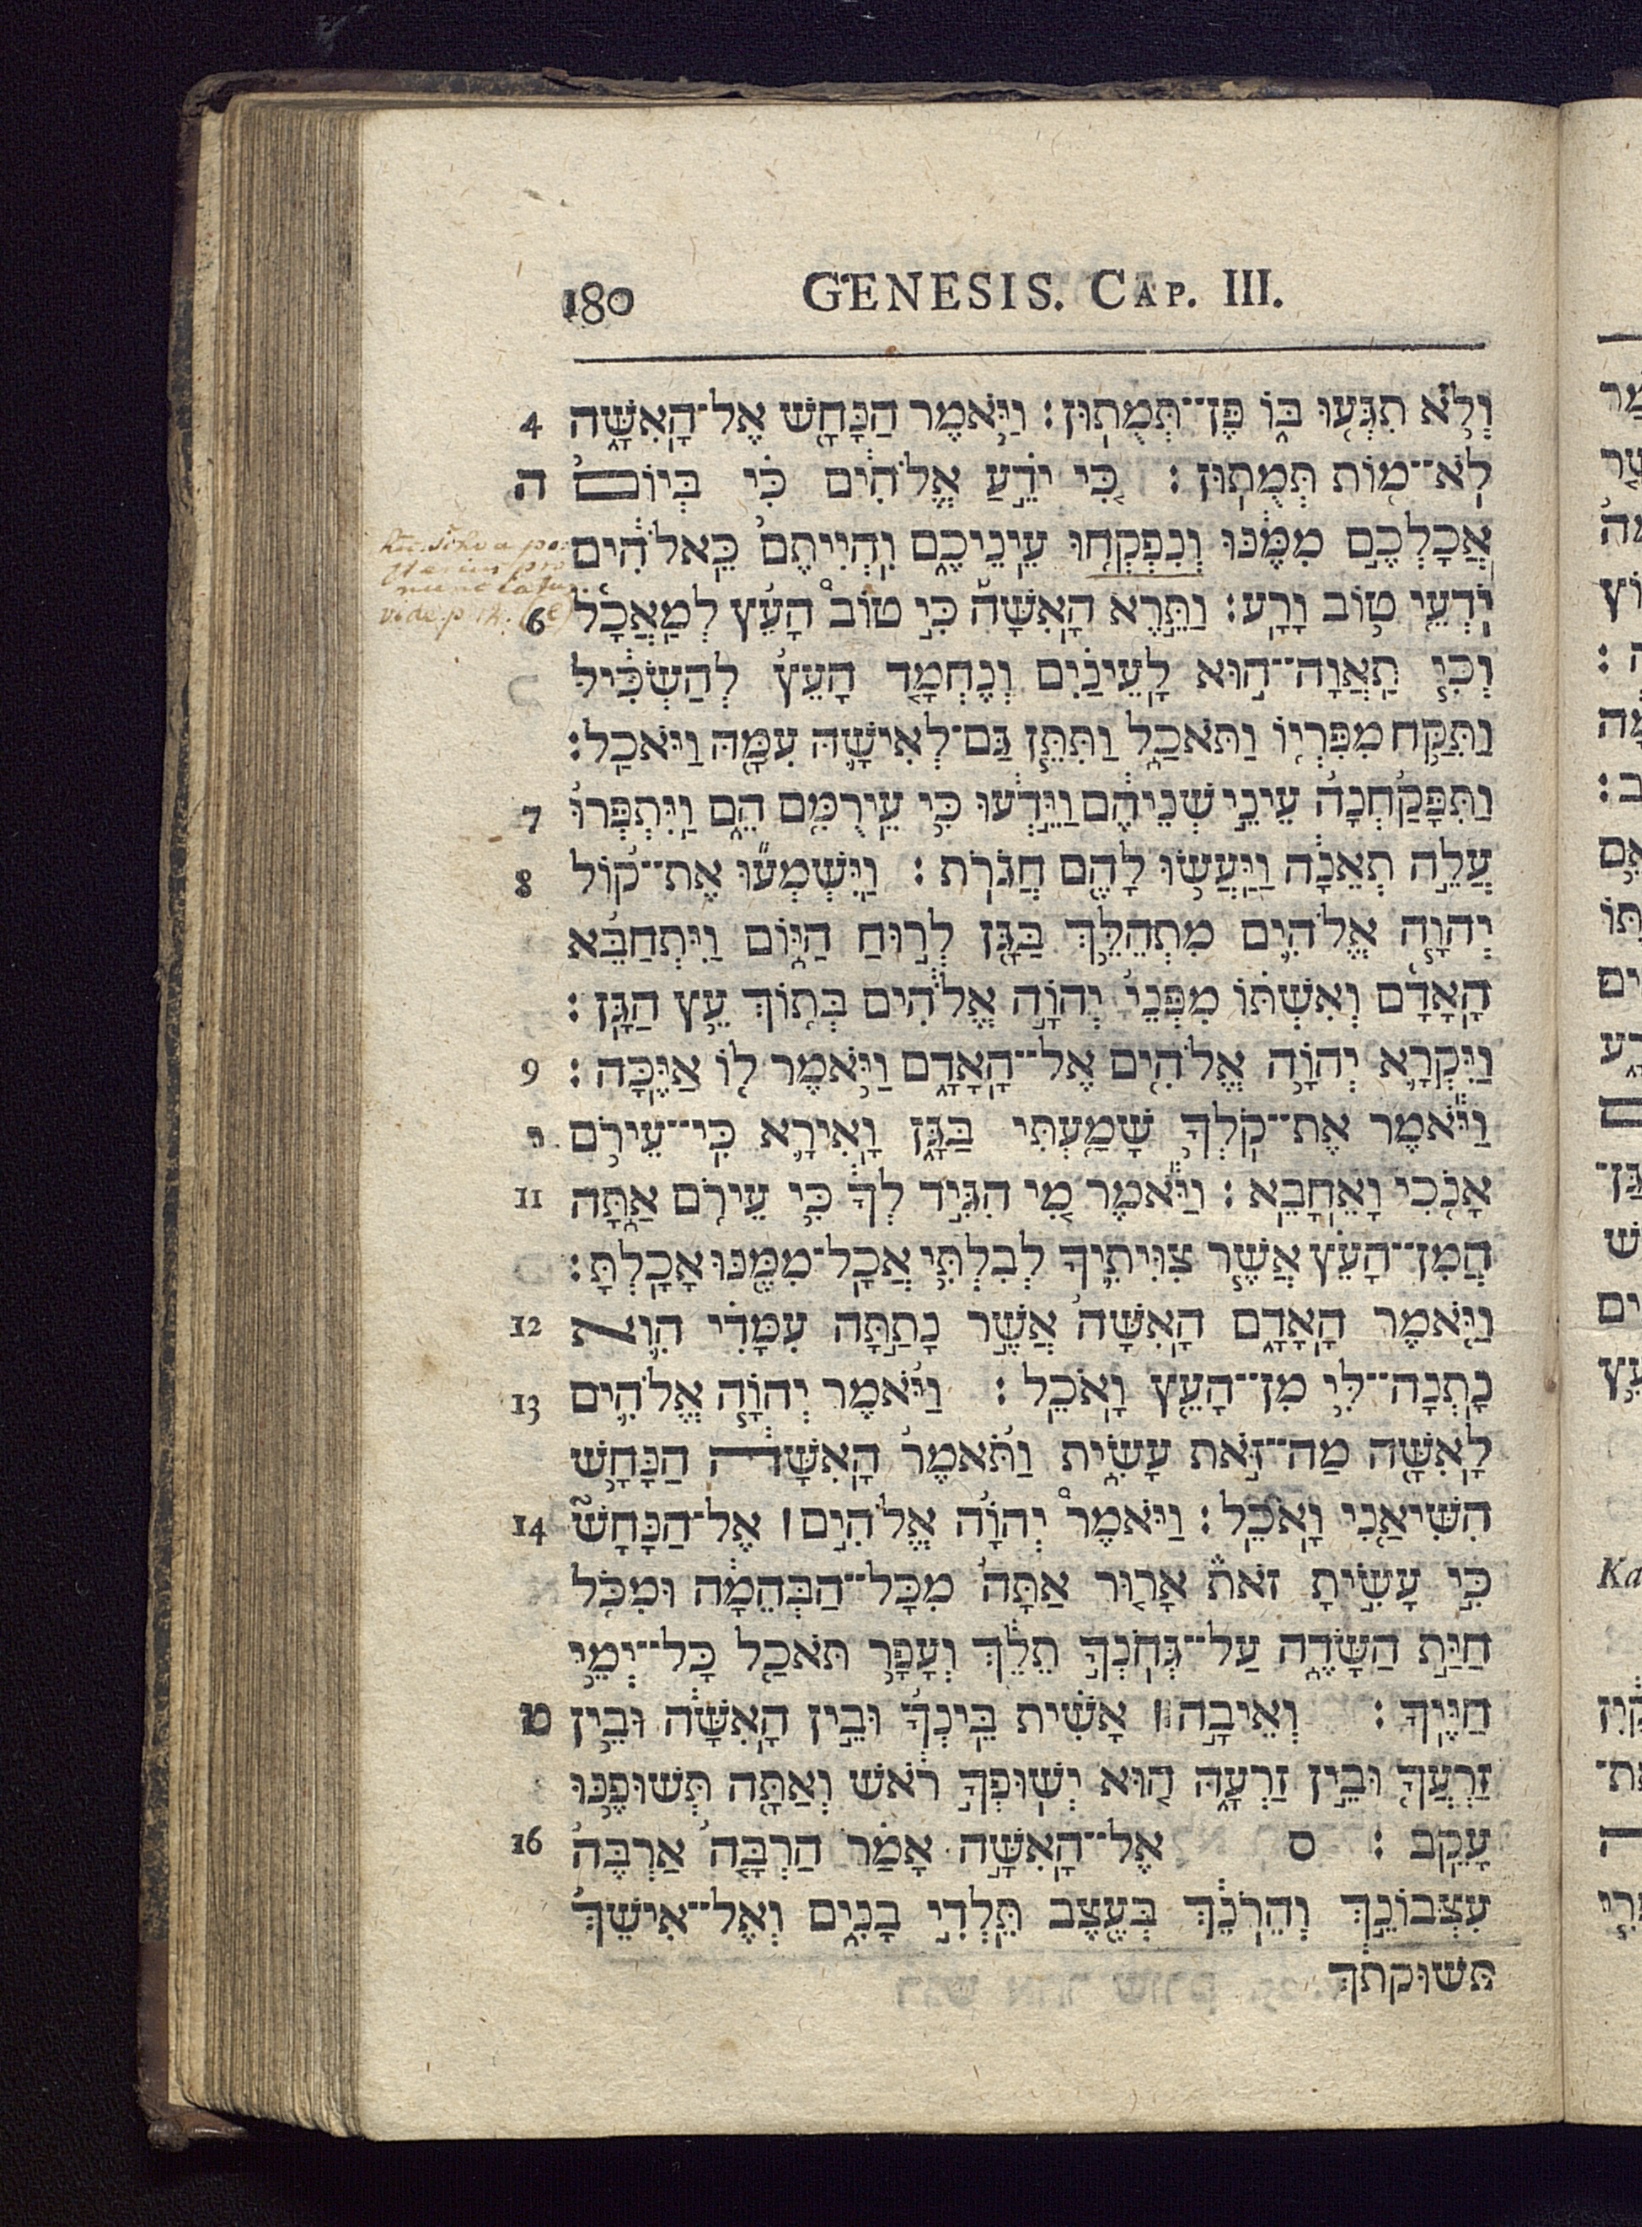 180 GENESIS. CAP. III.
4 וְלֹא תִגְּעוּ בּוֹ פֶּן־תְּמֻתוּן׃ וַיֹּאמֶר הַנָּחָשׁ אֶל־הָאִשָּׁה
ה לֹא־מוֹת תְּמֻתוּן׃ כִּי יֹדֵעַ אֱלֹהִים כִּי בְּיוֹם
אֲכָלְכֶם מִמֶּנּוּ וְנִפְקְחוּ עֵינֵיכֶם וִהְיִיתֶם כֵּאלֹהִים
6 יֹדְעֵי טוֹב וָרָע׃ וַתֵּרֶא הָאִשָּׁה כִּי טוֹב הָעֵץ לְמַאֲכָל
וְכִי תַאֲוָה־הוּא לָעֵינַיִם וְנֶחְמָד הָעֵץ לְהַשְׂכִּיל
וַתִּקַּח מִפִּרְיוֹ וַתֹּאכַל וַתִּתֵּן גַּם־לְאִישָׁהּ עִמָּהּ וַיֹּאכַל׃
7 וַתִּפָּקַחְנָה עֵינֵי שְׁנֵיהֶם וַיֵּדְעוּ כִּי עֵירֻמִּם הֵם וַיִּתְפְּרוּ
8 עֲלֵה תְאֵנָה וַיַּעֲשׂוּ לָהֶם חֲגֹרֹת׃ וַיִּשְׁמְעוּ אֶת־קוֹל
יְהוָה אֱלֹהִים מִתְהַלֵּךְ בַּגָּן לְרוּחַ הַיּוֹם וַיִּתְחַבֵּא
הָאָדָם וְאִשְׁתּוֹ מִפְּנֵי יְהוָה אֱלֹהִים בְּתוֹךְ עֵץ הַגָּן׃
9 וַיִּקְרָא יְהוָה אֱלֹהִים אֶל־הָאָדָם וַיֹּאמֶר לוֹ אַיֶּכָּה׃
י וַיֹּאמֶר אֶת־קֹלְךָ שָׁמַעְתִּי בַּגָּן וָאִירָא כִּי־עֵירֹם
11 אָנֹכִי וָאֵחָבֵא׃ וַיֹּאמֶר מִי הִגִּיד לְךָ כִּי עֵירֹם אַתָּה
הֲמִן־הָעֵץ אֲשֶׁר צִוִּיתִיךָ לְבִלְתִּי אֲכָל־מִמֶּנּוּ אָכָלְתָּ׃
12 וַיֹּאמֶר הָאָדָם הָאִשָּׁה אֲשֶׁר נָתַתָּה עִמָּדִי הִוא
13 נָתְנָה־לִּי מִן־הָעֵץ וָאֹכֵל׃ וַיֹּאמֶר יְהוָה אֱלֹהִים
לָאִשָּׁה מַה־זֹּאת עָשִׂית וַתֹּאמֶר הָאִשָּׁה הַנָּחָשׁ
14 הִשִּׁיאַנִי וָאֹכֵל׃ וַיֹּאמֶר יְהוָה אֱלֹהִים ׀ אֶל־הַנָּחָשׁ
כִּי עָשִׂיתָ זֹאת אָרוּר אַתָּה מִכָּל־הַבְּהֵמָה וּמִכֹּל
חַיַּת הַשָּׂדֶה עַל־גְּחֹנְךָ תֵלֵךְ וְעָפָר תֹּאכַל כָּל־יְמֵי
טו חַיֶּיךָ׃ וְאֵיבָה ׀ אָשִׁית בֵּינְךָ וּבֵין הָאִשָּׁה וּבֵין
זַרְעֲךָ וּבֵין זַרְעָהּ הוּא יְשׁוּפְךָ רֹאשׁ וְאַתָּה תְּשׁוּפֶנּוּ
16 עָקֵב׃ ס אֶל־הָאִשָּׁה אָמַר הַרְבָּה אַרְבֶּה
עִצְּבוֹנֵךְ וְהֵרֹנֵךְ בְּעֶצֶב תֵּלְדִי בָנִים וְאֶל־אִישֵׁךְ
תשוקתך